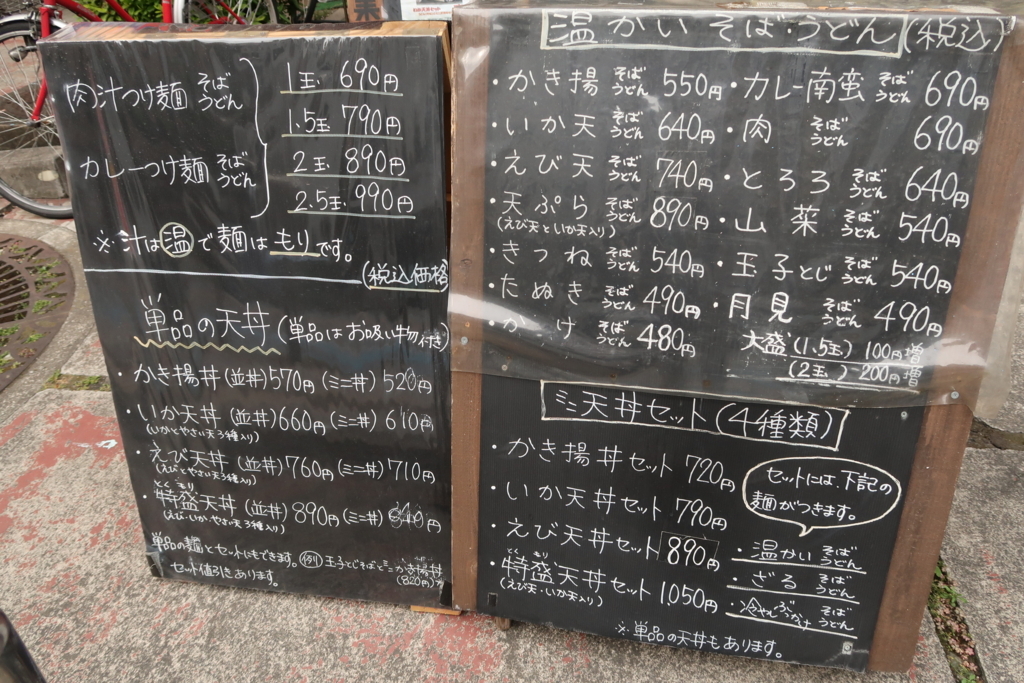 肉汁つけ麺 そば うどん
カレーつけ麺 そば うどん
1玉 690円
1.5玉 790円
2玉 890円
2.5玉 990円
※汁は温で麺はもりです。
(税込価格)
単品の天丼(単品はお吸い物付き)
・かき揚丼(並丼)570円(ミニ丼)520円
・いか天丼(並丼)660円(ミニ丼)610円
(いかとやさい天3種入り)
・えび天丼(並丼)760円(ミニ丼)710円
(えびとやさい天3種入り)
とく もり
・特盛天丼(並丼)890円(ミニ丼)840円
(えび・いかやさい天3種入り)
単品の麺とセットにもできます。例 玉子とじそばとミニかき揚丼
セット値引きあります。 (820円)
温かいそば・うどん(税込)
・かき揚 そば うどん 550円
・いか天 そば うどん 640円
・えび天 そば うどん 740円
・天ぷら そば うどん 890円
(えび天といか天入り)
・きつね そば うどん 540円
・たぬき そば うどん 490円
・かけ そば うどん 480円
・カレー南蛮 そば うどん 690円
・肉 そば うどん 690円
・とろろ そば うどん 640円
・山菜 そば うどん 540円
・玉子とじ そば うどん 540円
・月見 そば うどん 490円
大盛(1.5玉)100円増
(2玉)200円増
ミニ天丼セット(4種類)
・かき揚丼セット 720円
・いか天丼セット 790円
・えび天丼セット 890円
とく もり
・特盛天丼セット 1,050円
(えび天・いか天入り)
セットには、下記の
麺がつきます。
・温かい そば うどん
・ざる そば うどん
・冷やしぶっかけ そば うどん
※単品の天丼もあります。